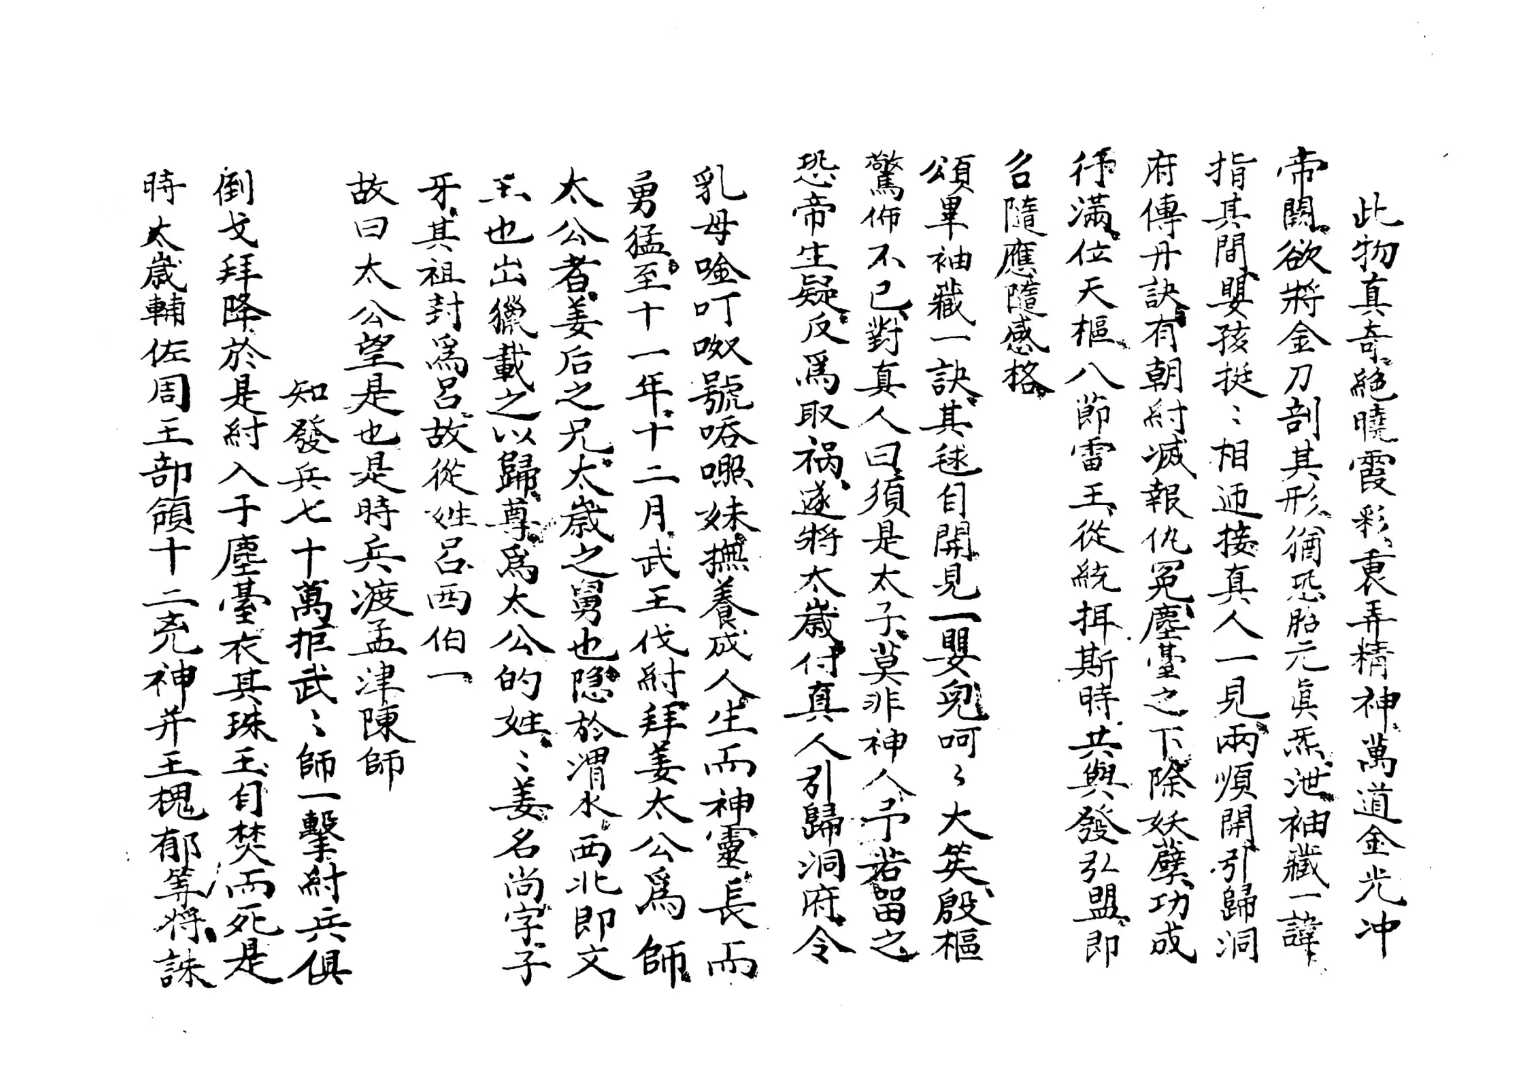 此物真奇絕曉霞彩裹弄精神萬道金光冲
帝闕欲將金刀剖其形猶恐胎元眞炁泄袖藏一諱
指其間嬰孩挺〻相迊接真人一見兩順開引歸洞
府傳丹訣有朝紂滅報仇冤塵臺之下除妖孽功成
行滿位天樞八節雷王從統揖斯時共與發弘盟即
召隨應隨感格
頌畢袖藏一訣其毬自開見一嬰兒呵〻大笑殷樞
驚怖不已對真人曰須是太子莫非神人予若留之
恐帝生疑反爲取禍遂將太歲付真人引歸洞府令
乳母唫叮呶號呑嘿妹撫養成人生而神靈長而
勇猛至十一年十二月武王伐紂拜姜太公爲師
太公者姜后之兄太歲之舅也隱於渭水西北即文
王也出獵載之以歸尊爲太公的姓〻姜名尚字子
牙其祖封爲呂故從姓呂西伯一
故曰太公望是也是時兵渡孟津陳師
知發兵七十萬拒武〻師一擊紂兵俱
倒戈拜降於是紂入于塵臺衣其珠玉自焚而死是
時太歲輔佐周王部領十二兇神并王槐郁等將誅